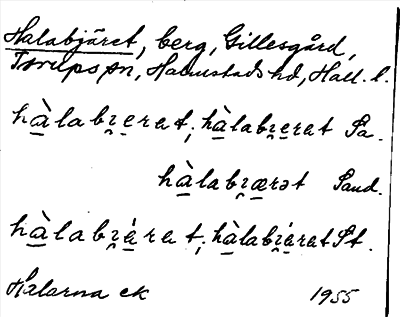 Halabjäret, berg, Gillesgård,
Torups sn, Halmstads hd, Hall. l.
hàlabi̯erat; hàlabi̯erat Sa.
hàlabi̯ærət Sand.
hàlabi̯árat; hàlabi̯árat St.
Halarna ek 1955